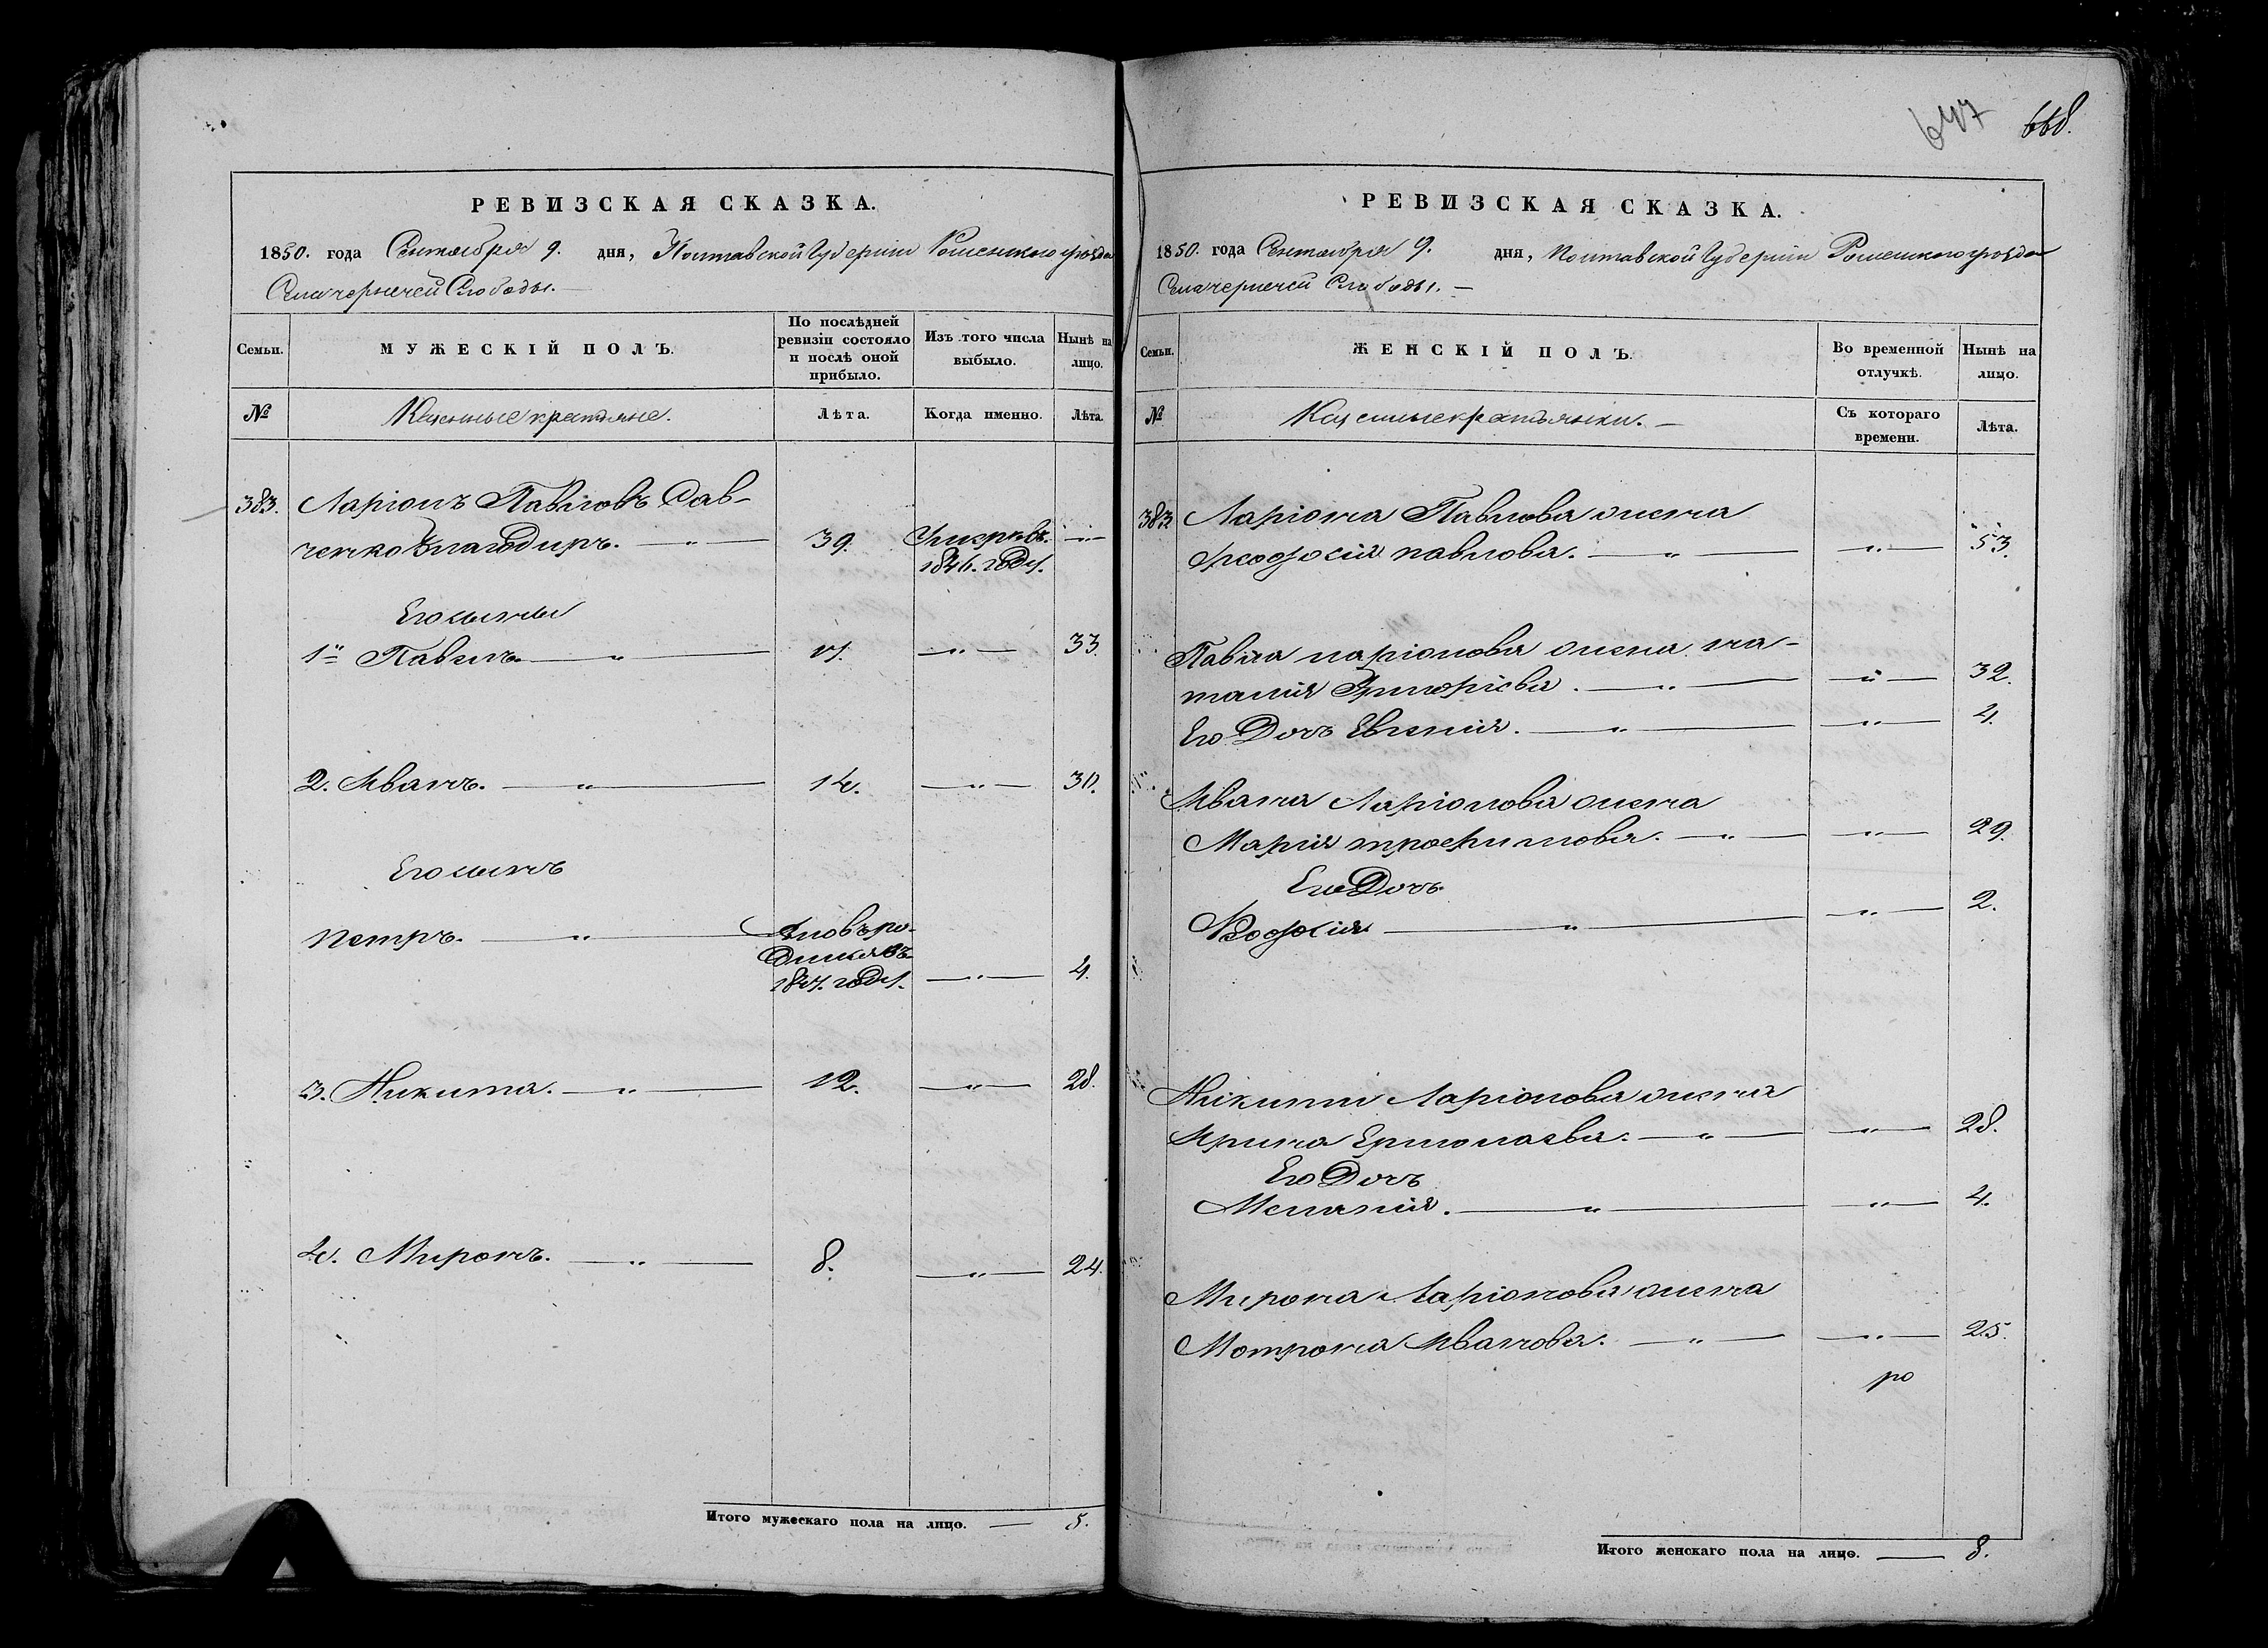 647 668.
РЕВИЗСКАЯ СКАЗКА.
1850. года Сентября 9. дня, Полтавской Губерніи Роменского уѣзда
Села чернечей Слободы. —
Семьи. МУЖЕСКІЙ ПОЛЪ. По послѣдней ревизіи состояло и послѣ оной прибыло. Изъ того числа выбыло. Нынѣ на лицо.
№ Казенные крестьяне. Лѣта. Когда именно. Лѣта.
383. Ларіонъ Павловъ Сав-
ченко 39. — „ —
1846. году.
Его сыны
1й Павелъ. — „ — 17. — „ — 33.
2. Иванъ. — „ — 14. — „ — 30.
Его сынъ
Петръ. — „ — вновь ро-
дился въ
1847. году. — „ — 4.
3. Никита. — „ — 12. — „ — 28.
4. Миронъ. — „ — 8. — „ — 24.
Итого мужескаго пола на лицо. — 5.
РЕВИЗСКАЯ СКАЗКА.
1850. года Сентября 9. дня, Полтавской Губерніи Роменского уѣзда
Села чернечей Слободы. —
Семьи. ЖЕНСКІЙ ПОЛЪ. Во временной отлучкѣ. Нынѣ на лицо.
№ Казенные крестьянки. — Съ котораго времени. Лѣта.
383 Ларіона Павлова жена
павлова. — „ — — „ — 53.
Павла ларіонова жена на-
талія Григоріева. — „ — — „ — 32.
Его Дочь Евгенія. — „ — — „ — 4.
Ивана Ларіонова жена
Марія трофимова. — „ — — „ — 29.
Его Дочь
— „ — — „ — 2.
Никиты Ларіонова жена
Ирина Ермолаева. — „ — — „ — 28.
Его Дочь
Меланія. — „ — — „ — 4.
Мирона Ларіонова жена
Мотрона Иванова. — „ — — „ — 25.
Итого женскаго пола на лицо. — 8.